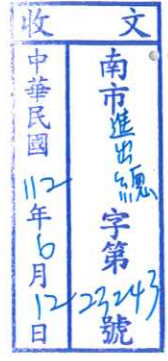 收文
南市進出總字第23243號
中華民國112年6月12日